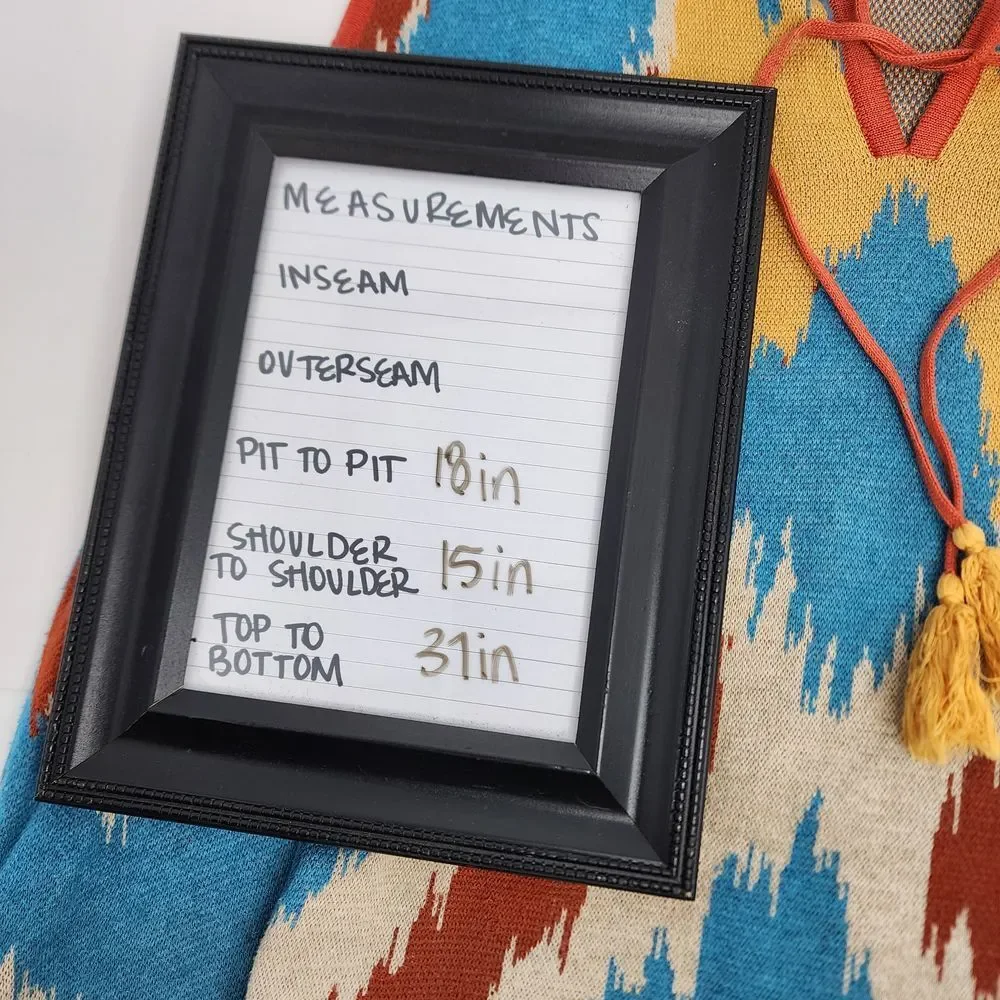 MEASUREMENTS
INSEAM
OUTERSEAM
PIT TO PIT 18in
SHOULDER
TO SHOULDER 15in
TOP TO
BOTTOM 31in